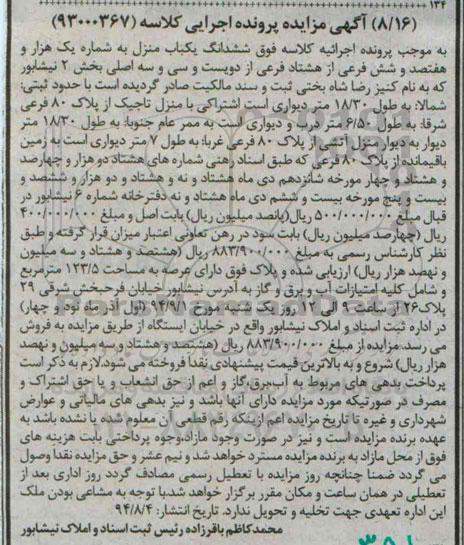 ۱۳۴
(۸/۱۶) آگهی مزایده پرونده اجرایی کلاسه (۹۳۰۰۰۳۶۷)
به موجب پرونده اجرائیه کلاسه فوق ششدانگ یکباب منزل به شماره یک هزار و
هفتصد و شش فرعی از هشتاد فرعی از دویست و سی و سه اصلی بخش ۲ نیشابور
که به نام کنیز رضا شاه بختی ثبت و سند مالکیت صادر گردیده است با حدود ثبتی:
شمالا: به طول ۱۸/۳۰ متر دیواری است اشتراکی با منزل تاجیک از پلاک ۸۰ فرعی
شرقا: به طول ۶/۵۰ متر درب و دیواری است به ممر عام جنوبا: به طول ۱۸/۳۰ متر
دیوار به دیوار منزل آتشی از پلاک ۸۰ فرعی غربا: به طول ۷ متر دیواری است به زمین
باقیمانده از پلاک ۸۰ فرعی که طبق اسناد رهنی شماره های هشتاد دو هزار و چهارصد
و هشتاد و چهار مورخه شانزدهم دی ماه هشتاد و نه و هشتاد و دو هزار و ششصد و
بیست و پنج مورخه بیست و ششم دی ماه هشتاد و نه دفترخانه شماره ۶ نیشابور در
قبال مبلغ ۵۰۰/۰۰۰/۰۰۰ ریال(پانصد میلیون ریال) بابت اصل و مبلغ ۴۰۰/۰۰۰/۰۰۰
ریال (چهارصد میلیون ریال) بابت سود در رهن تعاونی اعتبار میزان قرار گرفته و طبق
نظر کارشناس رسمی به مبلغ ۸۸۳/۹۰۰/۰۰۰ ریال (هشتصد و هشتاد و سه میلیون
و نهصد هزار ریال) ارزیابی شده و پلاک فوق دارای عرصه به مساحت ۱۲۳/۵ مترمربع
و شامل کلیه امتیازات آب و برق و گاز به آدرس نیشابور خیابان فرحبخش شرقی ۲۹
پلاک۱۲۶از ساعت ۹ الی ۱۲ روز یک شنبه مورخ ۹۴/۹/۱ (اول آذر ماه نود و چهار)
در اداره ثبت اسناد و املاک نیشابور واقع در خیابان ایستگاه از طریق مزایده به فروش
می رسد.مزایده از مبلغ ۸۸۳/۹۰۰/۰۰۰ ریال (هشتصد و هشتاد و سه میلیون و نهصد
هزار ریال) شروع و به بالاترین قیمت پیشنهادی نقدا فروخته می شود.لازم به ذکر است
پرداخت بدهی های مربوط به آب،برق،گاز و اعم از حق انشعاب و یا حق اشتراک و
مصرف در صورتیکه مورد مزایده دارای آنها باشد و نیز بدهی های مالیاتی و عوارض
شهرداری و غیره تا تاریخ مزایده اعم ازینکه رقم قطعی آن معلوم شده یا نشده باشد به
عهده برنده مزایده است و نیز در صورت وجود مازاد،وجوه پرداختی بابت هزینه های
فوق از محل مازاد به برنده مزایده مسترد خواهد شد و نیم عشر و حق مزایده نقدا وصول
می گردد ضمنا چنانچه روز مزایده با تعطیل رسمی مصادف گردد روز اداری بعد از
تعطیلی در همان ساعت و مکان مقرر برگزار خواهد شد.با توجه به مشاعی بودن ملک
این اداره تعهدی جهت تخلیه و تحویل ندارد. تاریخ انتشار: ۹۴/۸/۴
محمدکاظم باقرزاده رئیس ثبت اسناد و املاک نیشابور